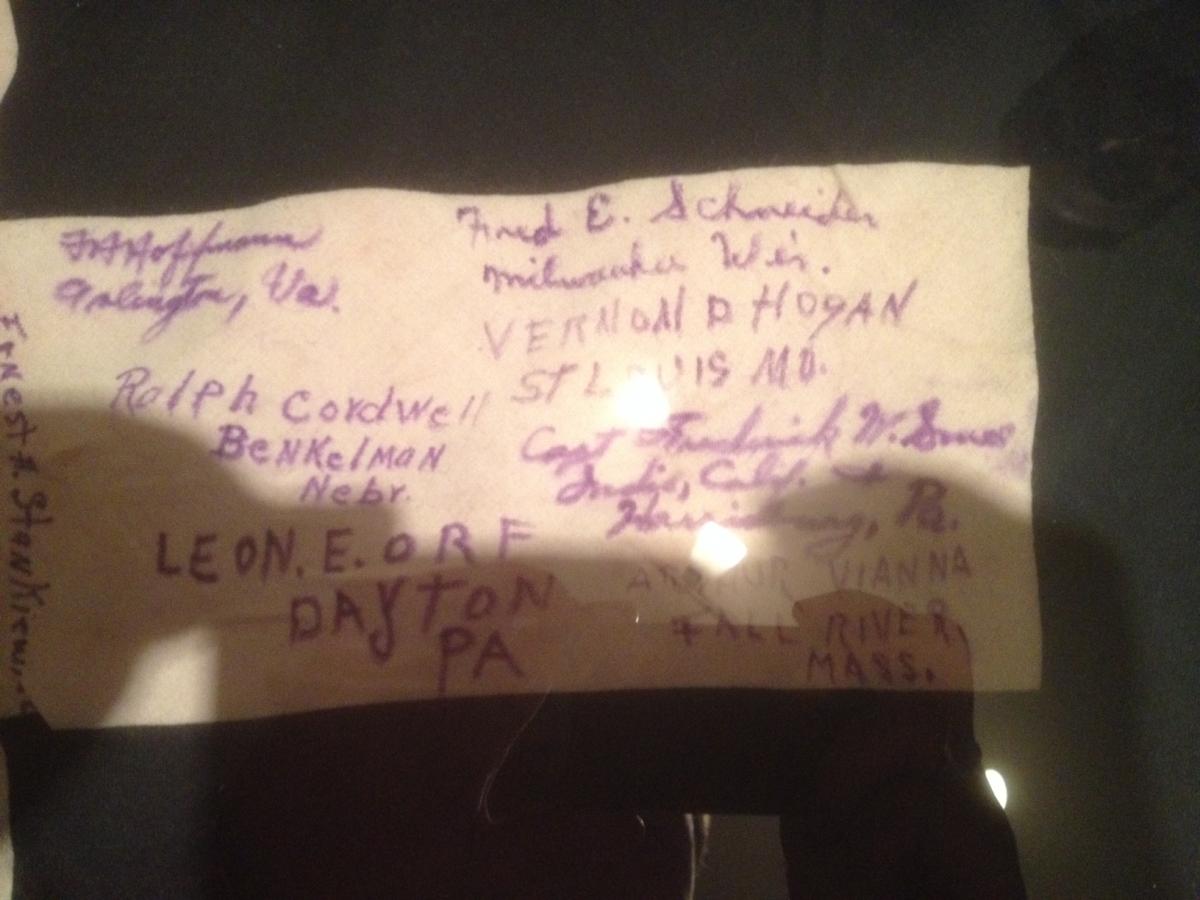 Hoffmann
Arlington, Va.
Ralph Cordwell
Benkelman
Nebr.
LEON. E. ORF
DAYTON
PA
Fred E. Schneider
Milwaukee Wis.
VERNON D HOGAN
ST LOUIS MO.
Capt Frederick W.
Indio, Calif. &
Harrisburg, Pa.
ARTHUR VIANNA
FALL RIVER,
MASS.
Ernest A.